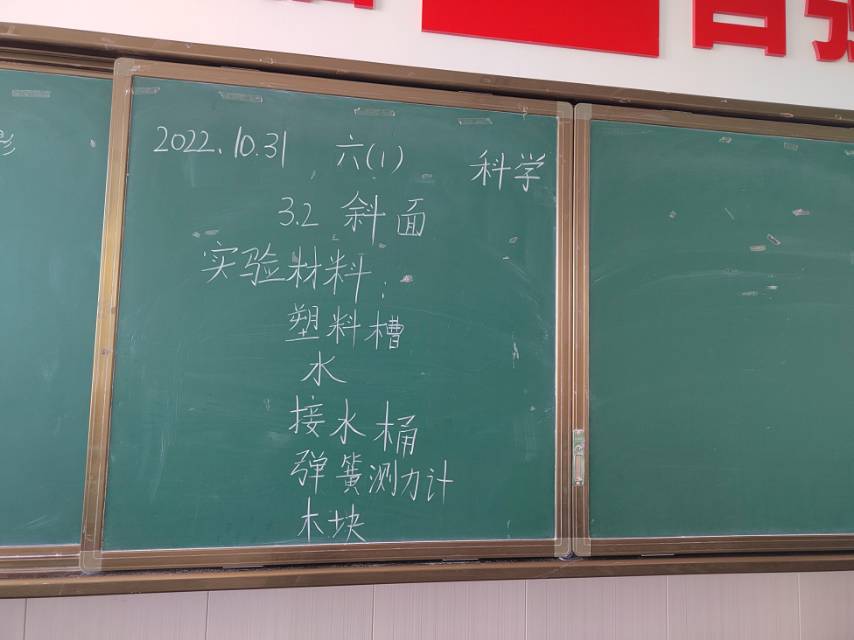 2022.10.31 六(1) 科学
3.2 斜面
实验材料:
塑料槽
水
接水桶
弹簧测力计
木块